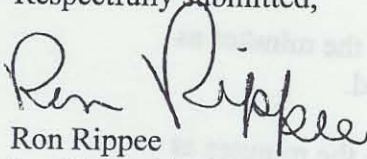 Respectfully submitted,
Ron Rippee
Ron Rippee